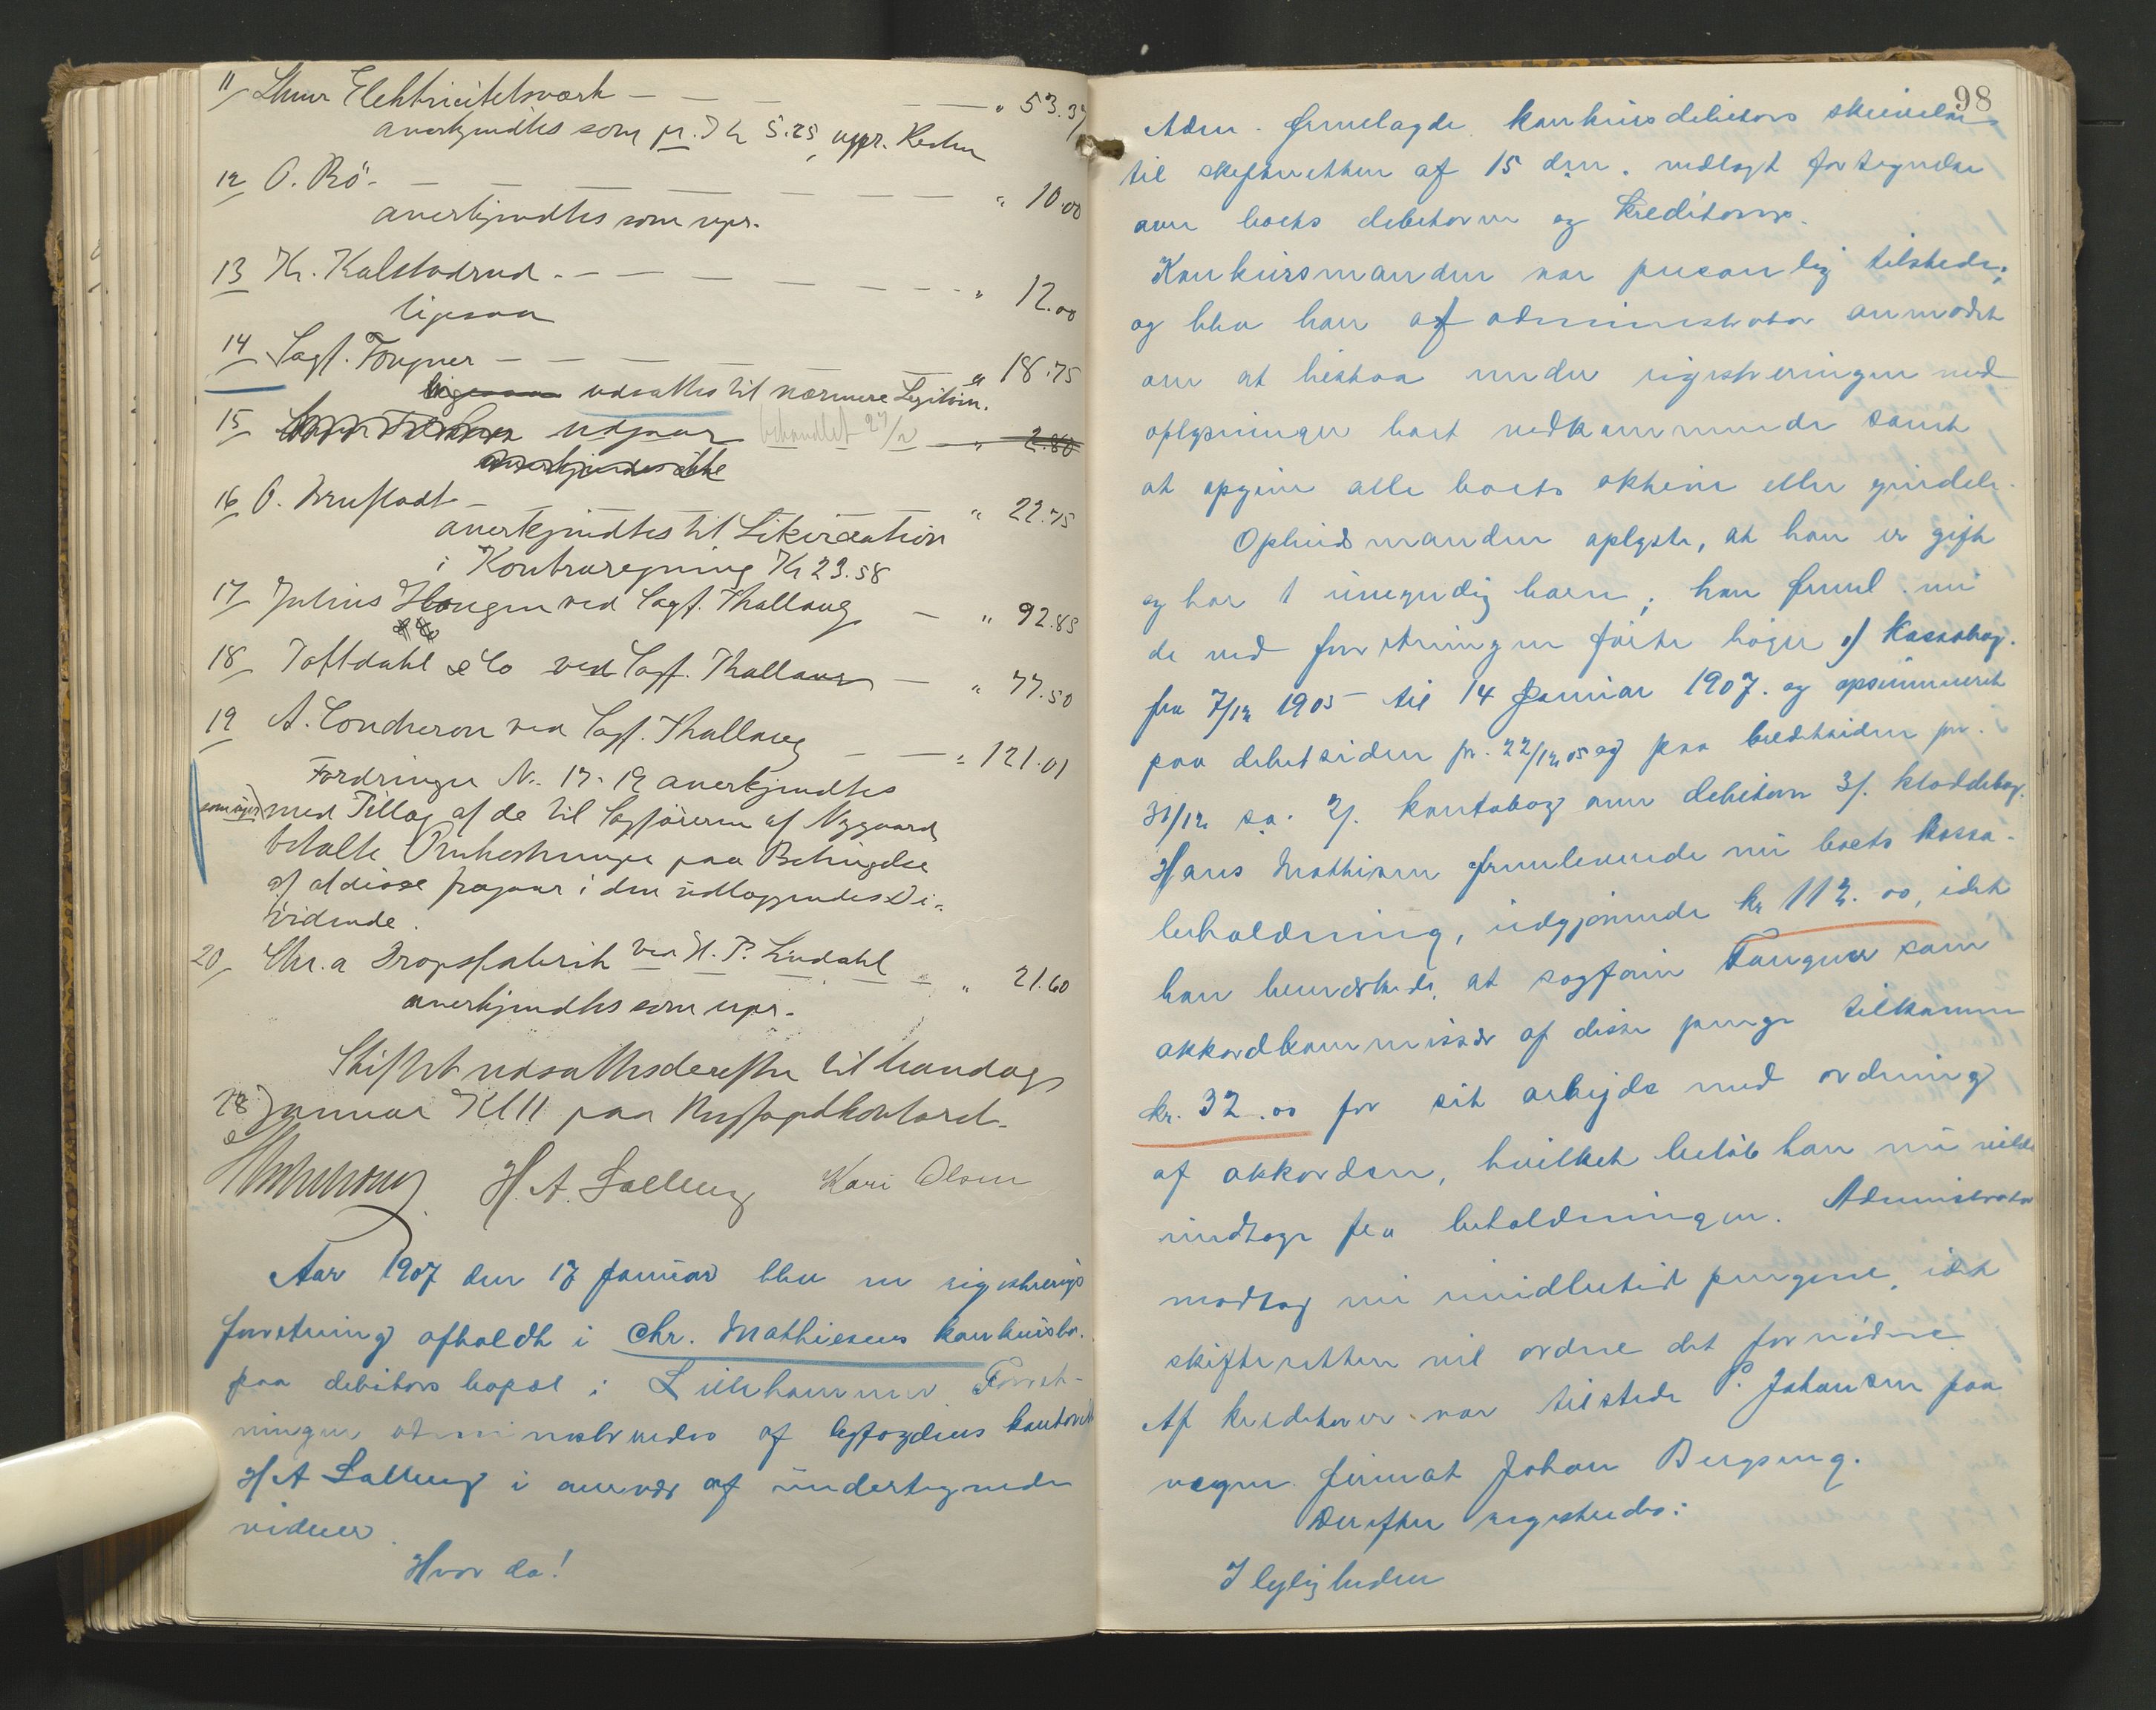 11/ Lhmr Elektricitetsværk — — — — " 53.37
anerkjendtes som pr. I Kr 5.25, uppr. Resten
12 O. Rö — — — — — — " 10.00
anerkjendtes som upr.
13 Kr. Kalstadrud — — — — — " 12.00
ligesaa
14 Sagf. Fougner — — — — " 18.75
ligesaa udsattes til nærmere Legitim.
15 udgaar behandlet — " 2.80
anerkjendes ikke
16 O. Brustadt — — — " 22.75
anerkjendtes til Likvidation
i Kontraregning Kr 23.58
17 Julius Haugen ved Sagf. Thallaug — " 92.85
18 Toftdahl & Co ved Sagf. Thallaug — " 77.50
19 A. Condreron ved Sagf. Thallaug — — " 121.01
Fordringer No. 17-19 anerkjendtes
med Tillæg af de til Sagförerne af Nygaard
betalte Omkostninger paa Betingelse
af at disse fragaar i den udlæggendes Di-
vidende.
20/ Chr.a Dropsfabrik ved H. P. Lindahl — " 21.60
anerkjendtes som upr.
Skiftet udsattes derefter til Mandag
28 Januar Kl 11 paa Byfogdkontoret.
H. A. Salberg Kari Olsen
Aar 1907 den 17 Januar blev en registrerings
forretning afholdt i Chr. Mathiesens konkursbo.
paa debitors bopæl i Lillehammer. Forret-
ningen administreredes af byfogdens kontorist
H A Salberg i overvær af undertegnede
vidner.
Hvor da!
98
Adm. fremlagde konkursdebitors skrivelse
til skifteretten af 15 dm. vedlagt fortegnelse
over boets debitorer og kreditorer.
Konkursmanden var personlig tilstede;
og blev han af administrator anmodet
om at bistaa under registreringen med
oplysninger boet vedkommende samt
at opgive alle boets aktiver eller eiendele.
Opbudsmanden oplyste, at han er gift
og har 1 umyndig barn; han freml. nu
de ved forretningen førte bøger 1) Kassabog.
fra 7/12 1905 til 14 Januar 1907. og opsummeret
paa debetsiden pr. 22/12 05 og paa kreditsiden pr.
31/12 s.a. 2). kontobog over debitorer 3). kladdebog.
Hans Mathisen fremleverede nu boets kassa-
beholdning, udgjørende kr 112.00, idet
han bemærkede, at sagfører Fougner som
akkordkommissær af disse penge tilkommer
kr. 32.00 for sit arbejde med ordning
af akkorden, hvilket beløb han nu vilde
indtage fra beholdningen. Administrator
modtog nu imidlertid pengene, idet
skifteretten vil ordne det fornødne
Af kreditorer var tilstede P. Johansen paa
vegne firmaet Johan Bergseng.
Derefter registredes:
I lejligheden